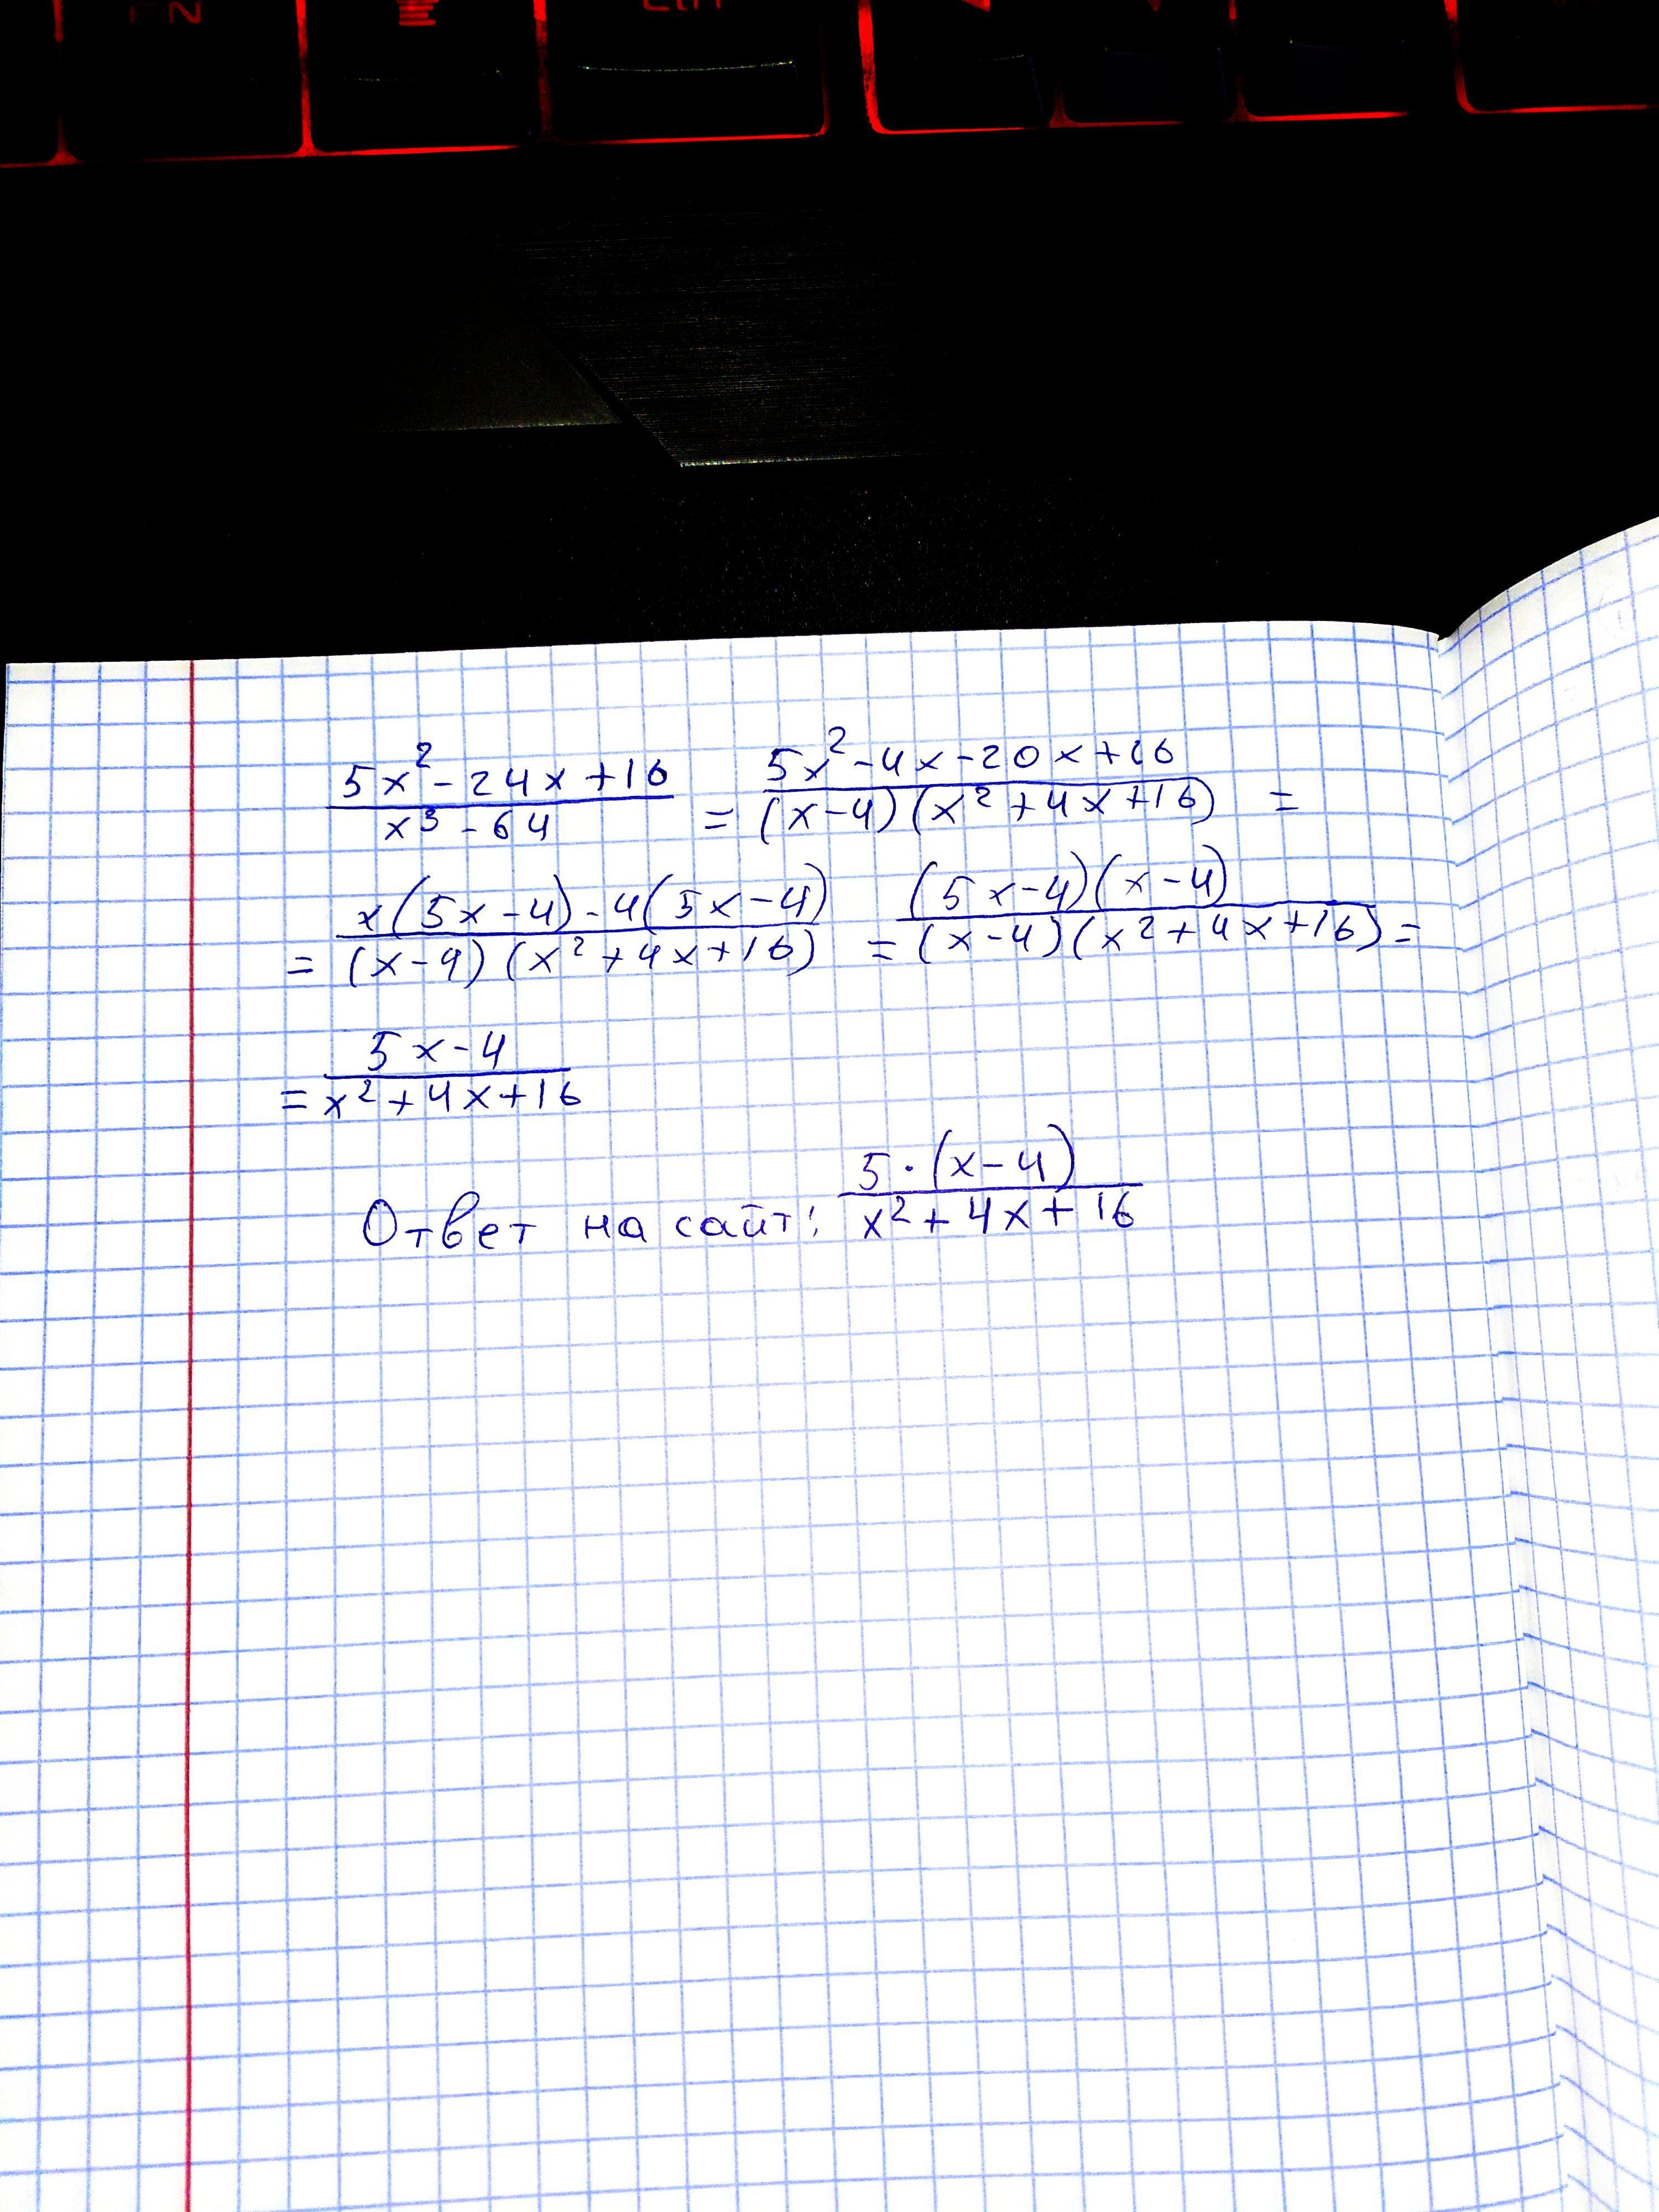 FN Ctrl
5x² - 24x + 16 / x³ - 64 = 5x² - 4x - 20x + 16 / (x - 4)(x² + 4x + 16) =
= x(5x - 4) - 4(5x - 4) / (x - 4)(x² + 4x + 16) = (5x - 4)(x - 4) / (x - 4)(x² + 4x + 16) =
= 5x - 4 / x² + 4x + 16
Ответ на сайт: 5 · (x - 4) / x² + 4x + 16